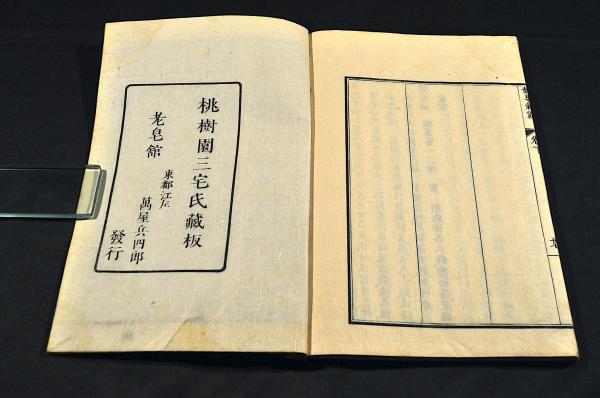 桃樹園三宅氏藏板
老皂舘
東都江左
萬屋兵四郎
發行